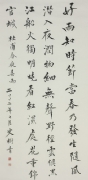 好雨知時節當春乃發生隨風
潛入夜潤物細無聲野徑雲俱黑
江船火獨明曉看紅濕處花重錦
官城 杜甫春夜喜雨